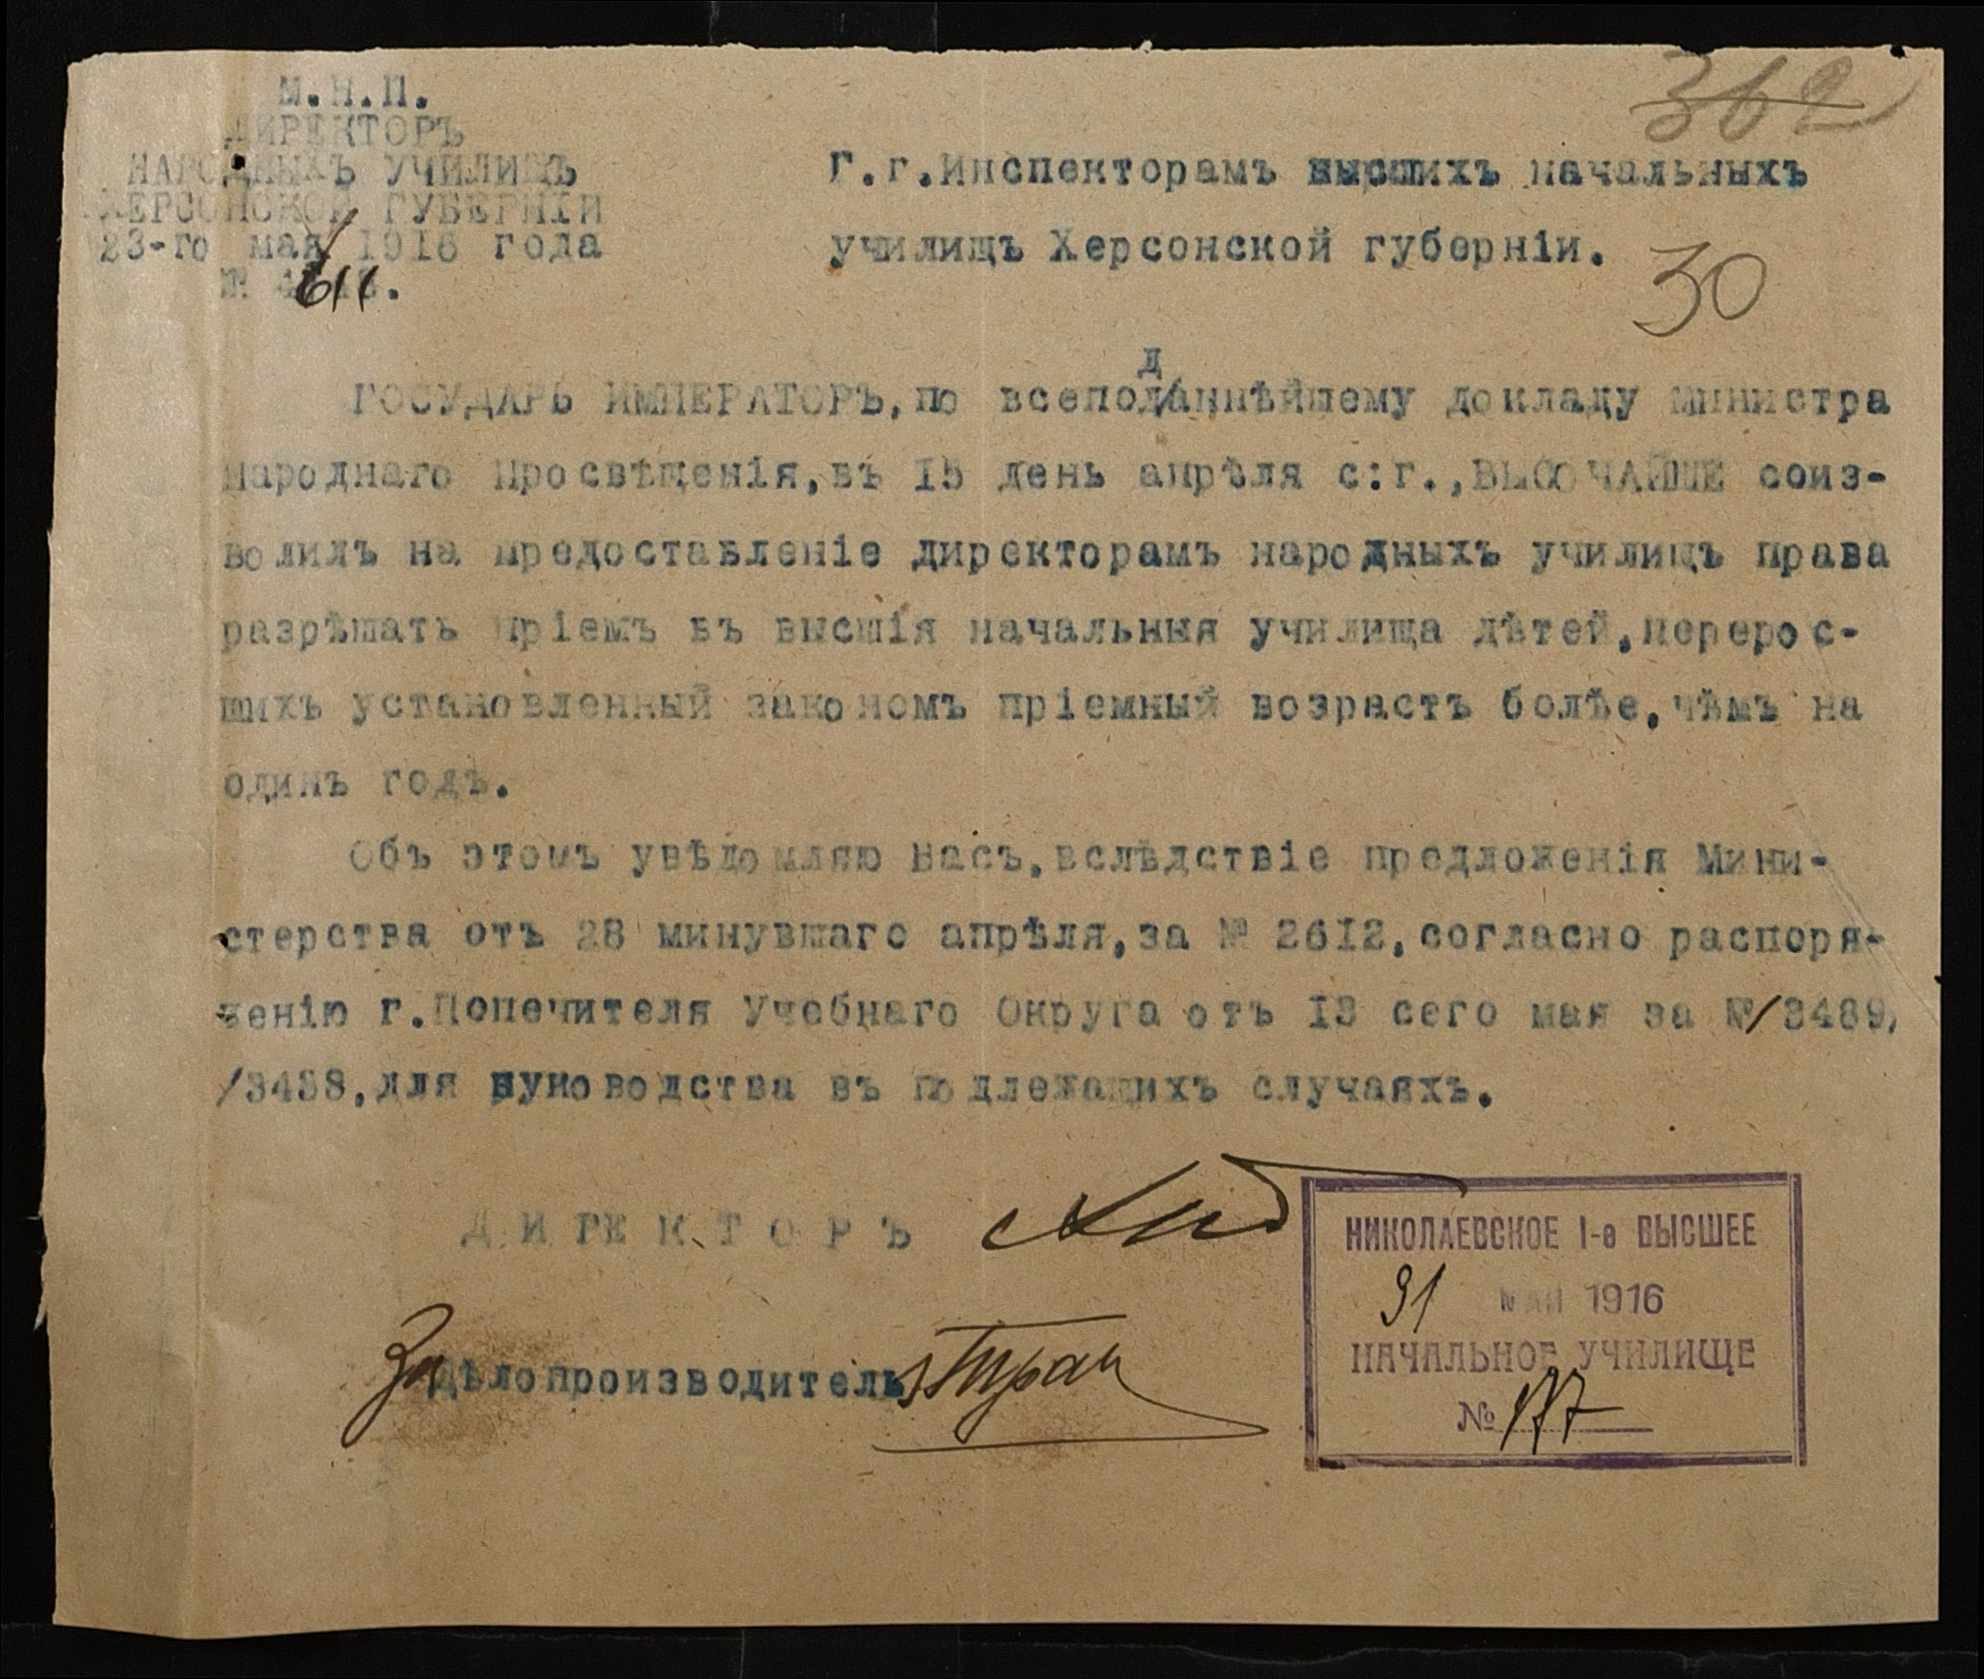 362
М.Н.П.
ДИРЕКТОРЪ
НАРОДНЫХЪ УЧИЛИЩЪ
ХЕРСОНСКОЙ ГУБЕРНІИ
23-го мая 1916 года
№
Г.г.Инспекторамъ высшихъ начальныхъ
училищъ Херсонской губерніи.
30
ГОСУДАРЬ ИМПЕРАТОРЪ,по всеподданнѣйшему докладу Министра
народнаго Просвѣщенія,въ 15 день апрѣля с:г.,ВЫСОЧАЙШЕ соиз-
волилъ на предоставленіе директорамъ народныхъ училищъ права
разрѣшать пріемъ въ высшія начальныя училища дѣтей,перерос-
шихъ установленный закономъ пріемный возрастъ болѣе,чѣмъ на
одинъ годъ.
Объ этомъ увѣдомляю Васъ,вслѣдствіе предложенія Мини-
стерства отъ 28 минувшаго апрѣля,за № 2612,согласно распоря-
женію г.Попечителя Учебнаго Округа отъ 13 сего мая за №/3489,
/3438,для руководства въ подлежащихъ случаяхъ.
ДИРЕКТОРЪ
За Дѣлопроизводитель
НИКОЛАЕВСКОЕ 1-е ВЫСШЕЕ
31 МАЙ 1916
НАЧАЛЬНОЕ УЧИЛИЩЕ
№ 177